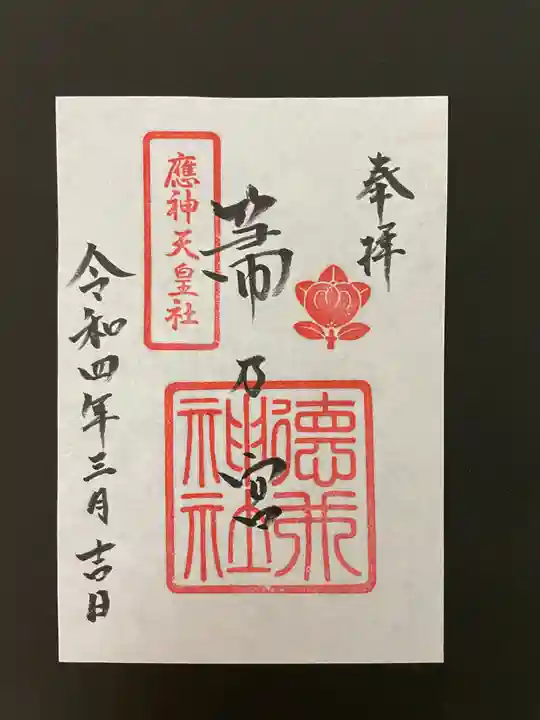 奉拝
乃宮
德
神社
應神天皇社
令和四年三月吉日